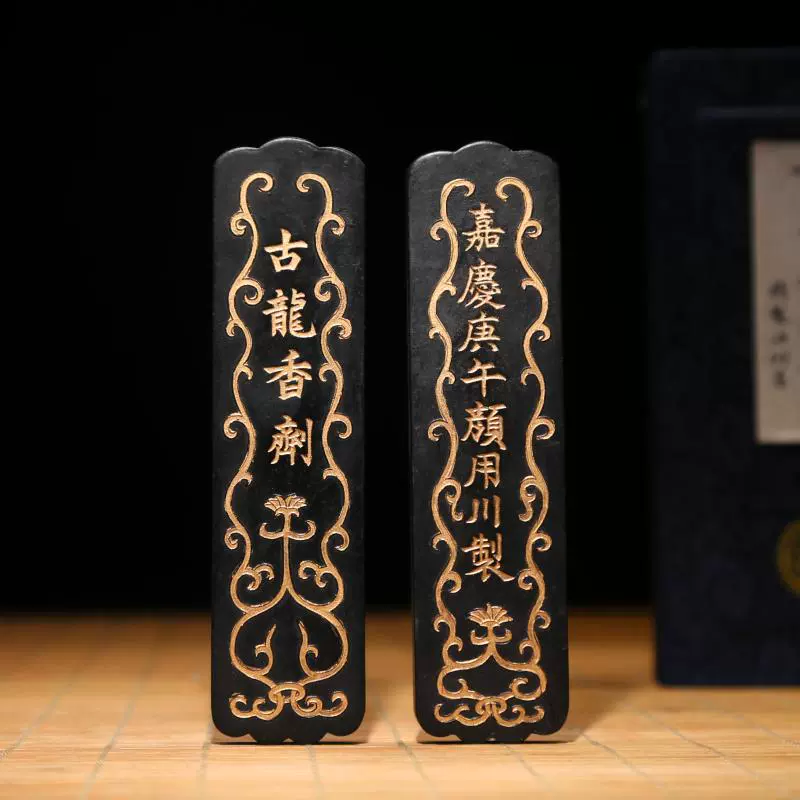 古龍香劑
嘉慶庚午顏用川製